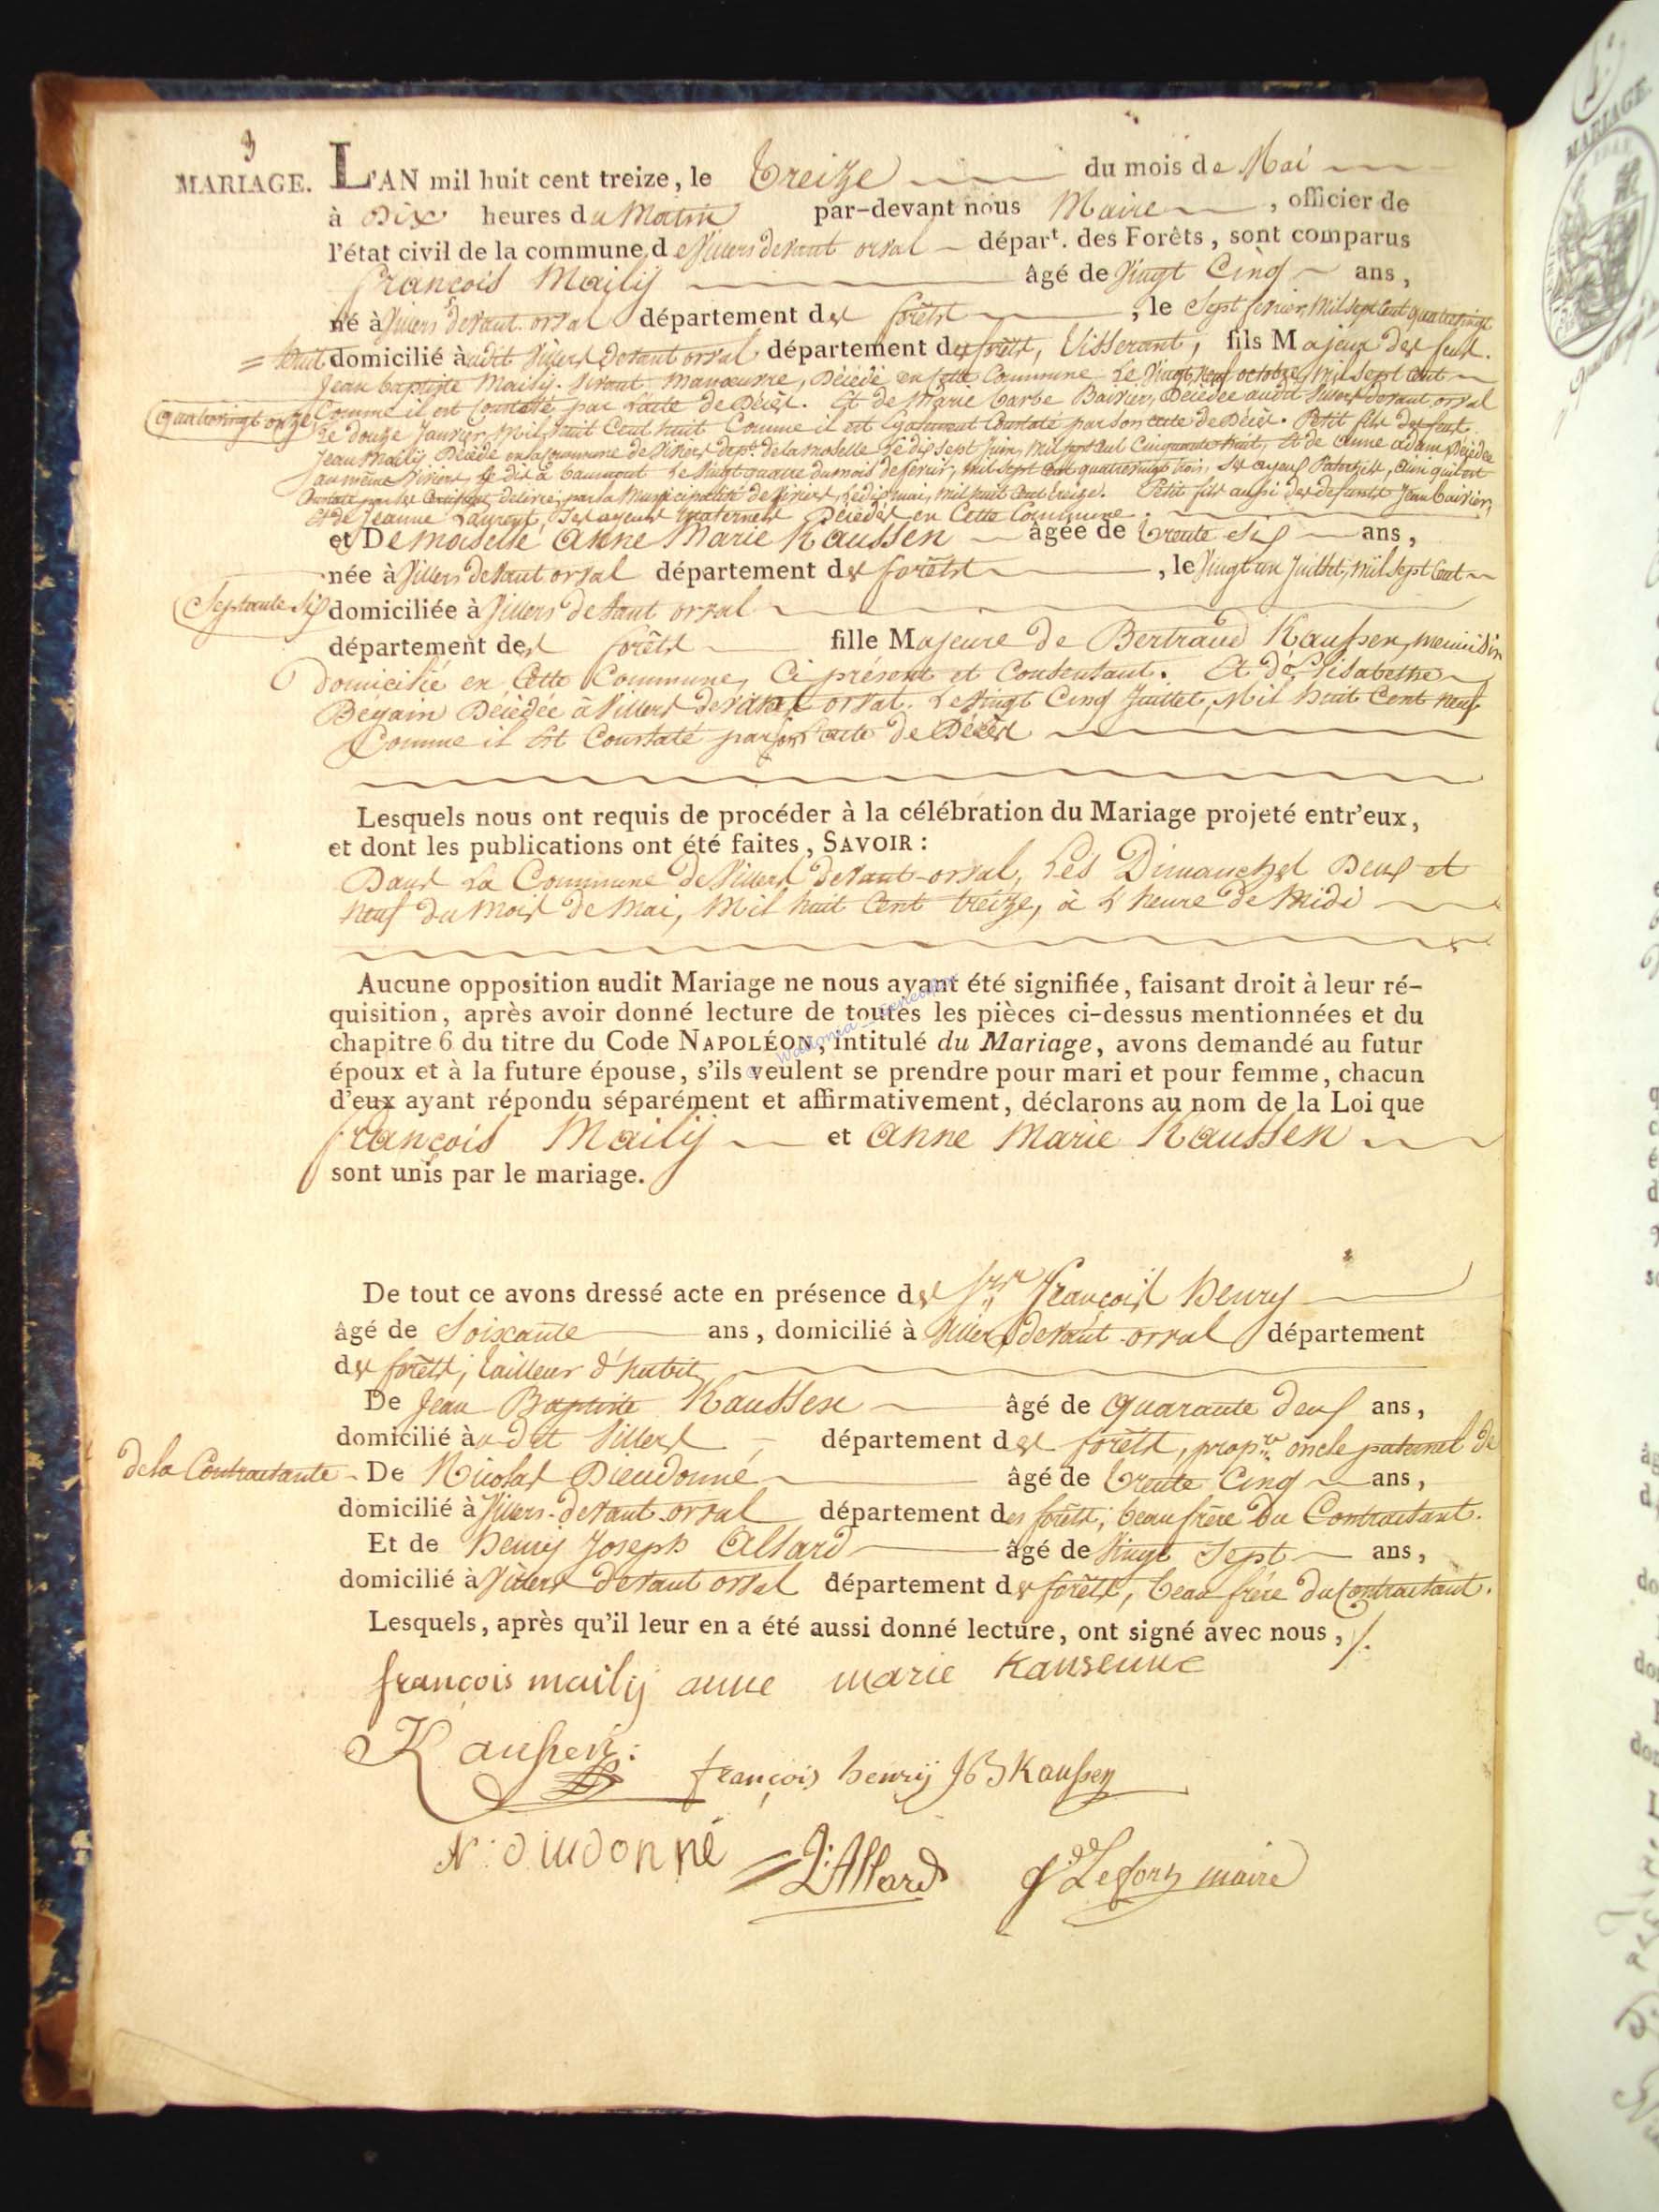 3
MARIAGE. L'AN mil huit cent treize, le treize du mois de Mai
à Dix heures du Matin par-devant nous Maire, officier de
l'état civil de la commune de Villers devant orval départ. des Forêts, sont comparus
François Maily âgé de Vingt Cinq ans,
né à Villers devant orval département des forêts, le Sept fevrier, Mil sept Cent quatrevingt
= huit domicilié audit Villers devant orval département des forêts, tisserant, fils Majeur des feus.
Jean baptiste Maily. vivant manœuvre, Décédé en Cette Commune Le Vingt neuf octobre, Mil sept Cent
quatrevingt onze, Comme il est Constaté par L'acte de Décès. Et de Marie barbe Bairier, Décédée audit Villers devant orval
Le douze Janvier, Mil huit Cent huit Comme il est Egalement Constaté par son acte de Décès. Petit fils des feus.
Jean Maily Décédé en la Commune de Viviers dept. de la moselle Le dix sept Juin, Mil sept Cent Cinquante huit, Et de anne adam Décédée
au même Viviers, Le dit à baumont Le Vingt quatre du mois de fevrier, mil sept Cent quatrevingt trois, Ses ayeuls Paternels, ainsi qu'il est
Constaté par les Extraits delivrés par la Municipalité de Viviers, Le dix mai, mil huit Cent treize. Petit fils aussi des defunts Jean bairier,
Et de Jeanne Laurent, Ses ayeuls maternels Décédés en Cette Commune.
et Demoiselle Anne Marie Kaussen âgée de trente Six ans,
née à Villers devant orval département des forêts, le Vingt un Juillet, Mil Sept Cent
Septante Six domiciliée à Villers devant orval
département des forêts fille Majeure de Bertrand Kaussen, menuisier
Domicilié en Cette Commune, Ci présent et Consentant. Et d'Elisabethe
Begain Décédée à Villers devant orval. Le Vingt Cinq Juillet, Mil huit Cent neuf
Comme il Est Constaté par son acte de Décès
Lesquels nous ont requis de procéder à la célébration du Mariage projeté entr'eux,
et dont les publications ont été faites, SAVOIR :
Dans La Commune de Villers devant-orval, Les Dimanches Deux et
neuf du Mois de Mai, Mil huit Cent treize, à L'heure de Midi
Aucune opposition audit Mariage ne nous ayant été signifiée, faisant droit à leur ré-
quisition, après avoir donné lecture de toutes les pièces ci-dessus mentionnées et du
chapitre 6 du titre du Code NAPOLÉON, intitulé du Mariage, avons demandé au futur
époux et à la future épouse, s'ils veulent se prendre pour mari et pour femme, chacun
d'eux ayant répondu séparément et affirmativement, déclarons au nom de la Loi que
François Maily et Anne Marie Kaussen
sont unis par le mariage.
De tout ce avons dressé acte en présence des Srs François Henry
âgé de Soixante ans, domicilié à Villers devant-orval département
des forêts, tailleur d'habit
De Jean Baptiste Kaussen âgé de quarante deux ans,
domicilié audit Villers département des forêts, propre oncle paternel de
de la Contractante - De Nicolas Dieudonné âgé de trente Cinq ans,
domicilié à Villers-devant-orval département des forêts, beau frère du Contractant.
Et de Henry Joseph Allard âgé de Vingt Sept ans,
domicilié à Villers devant orval département des forêts, beau frère du Contractant.
Lesquels, après qu'il leur en a été aussi donné lecture, ont signé avec nous, /.
françois maily anne marie Kausenne
Kaussen:
françois henry JB Kaussen
N: diudonné
Allard
Lefort maire
MARIAGE